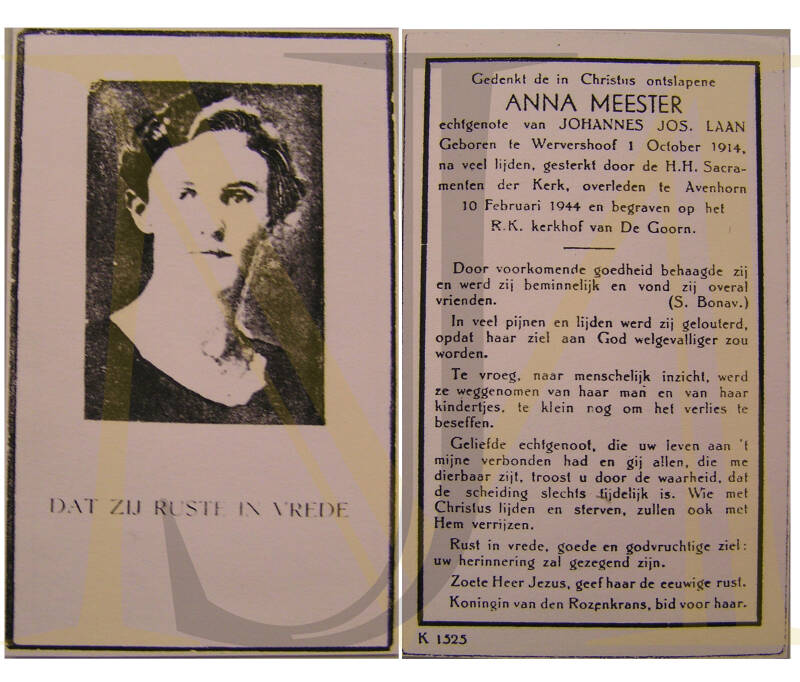 DAT ZIJ RUSTE IN VREDE
Gedenkt de in Christus ontslapene
ANNA MEESTER
echtgenote van JOHANNES JOS. LAAN
Geboren te Wervershoof 1 October 1914,
na veel lijden, gesterkt door de H.H. Sacra-
menten der Kerk, overleden te Avenhorn
10 Februari 1944 en begraven op het
R.K. kerkhof van De Goorn.
Door voorkomende goedheid behaagde zij
en werd zij beminnelijk en vond zij overal
vrienden. (S. Bonav.)
In veel pijnen en lijden werd zij gelouterd,
opdat haar ziel aan God welgevalliger zou
worden.
Te vroeg, naar menschelijk inzicht, werd
ze weggenomen van haar man en van haar
kindertjes, te klein nog om het verlies te
beseffen.
Geliefde echtgenoot, die uw leven aan 't
mijne verbonden had en gij allen, die me
dierbaar zijt, troost u door de waarheid, dat
de scheiding slechts tijdelijk is. Wie met
Christus lijden en sterven, zullen ook met
Hem verrijzen.
Rust in vrede, goede en godvruchtige ziel:
uw herinnering zal gezegend zijn.
Zoete Heer Jezus, geef haar de eeuwige rust.
Koningin van den Rozenkrans, bid voor haar.
K 1525